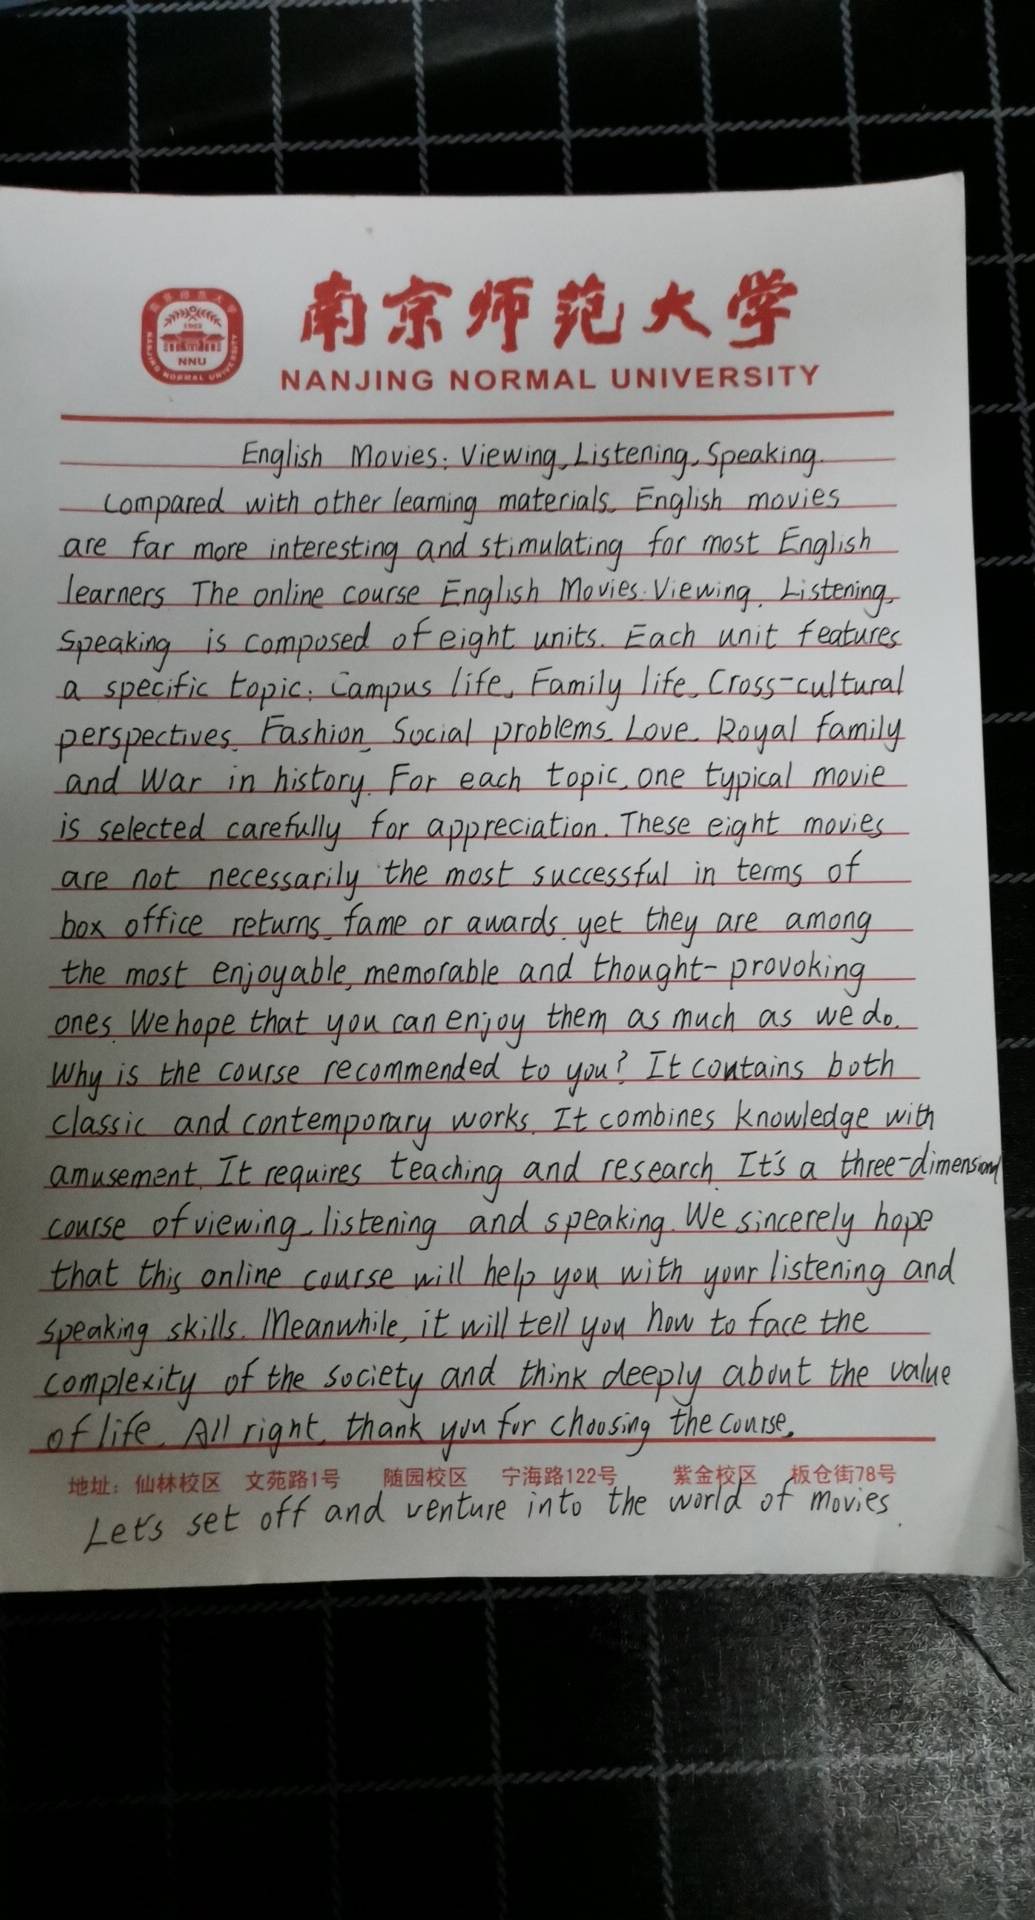 南京师范大学
NANJING NORMAL UNIVERSITY
1902
NNU
NANJING NORMAL UNIVERSITY
English Movies: Viewing, Listening, Speaking.
Compared with other learning materials, English movies
are far more interesting and stimulating for most English
learners. The online course English Movies: Viewing, Listening,
Speaking is composed of eight units. Each unit features
a specific topic: Campus life, Family life, Cross-cultural
perspectives, Fashion, Social problems, Love, Royal family
and War in history. For each topic, one typical movie
is selected carefully for appreciation. These eight movies
are not necessarily the most successful in terms of
box office returns, fame or awards, yet they are among
the most enjoyable, memorable and thought-provoking
ones. We hope that you can enjoy them as much as we do.
Why is the course recommended to you? It contains both
classic and contemporary works. It combines knowledge with
amusement. It requires teaching and research. It's a three-dimensional
course of viewing, listening and speaking. We sincerely hope
that this online course will help you with your listening and
speaking skills. Meanwhile, it will tell you how to face the
complexity of the society and think deeply about the value
of life. All right, thank you for choosing the course.
地址：仙林校区 文苑路1号 随园校区 宁海路122号 紫金校区 板仓街78号
Let's set off and venture into the world of movies.